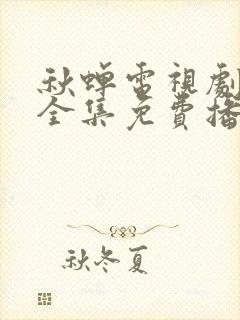 秋蟬電視劇
全集免費播
秋冬夏